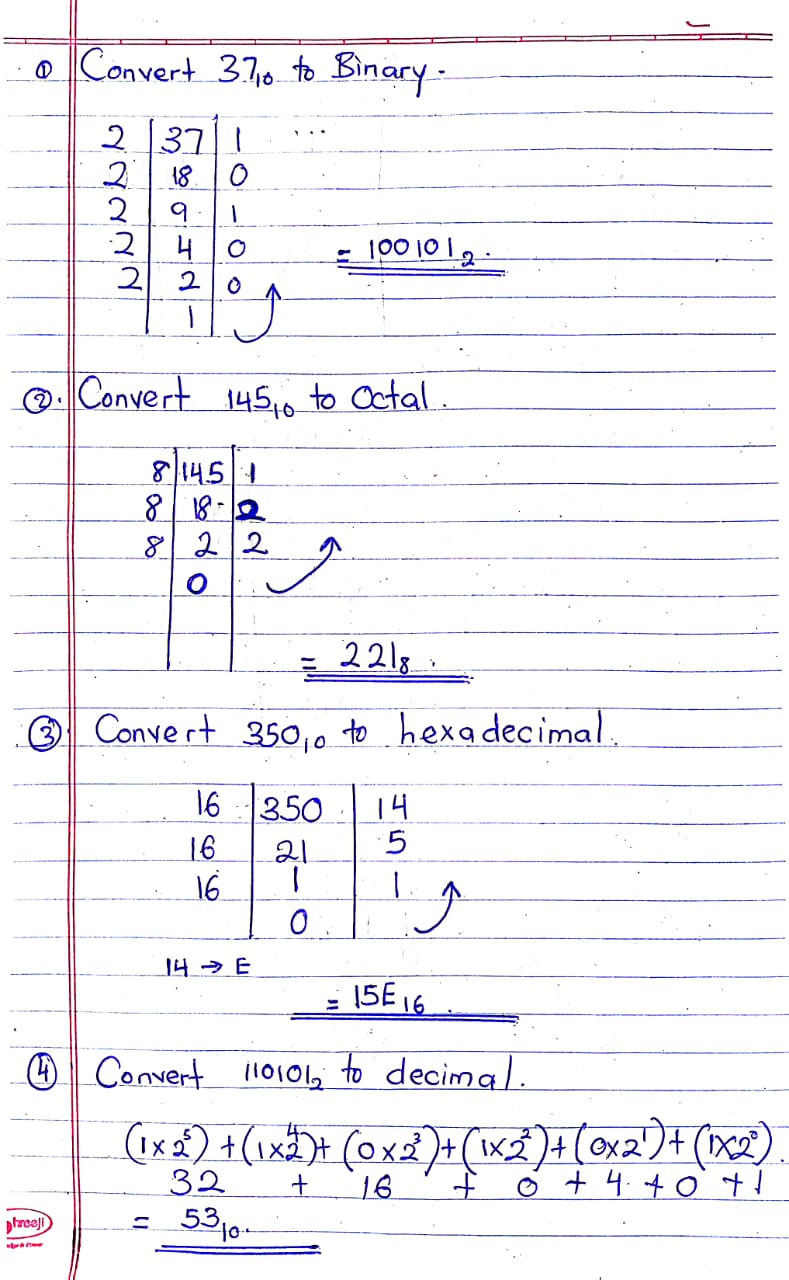 ① Convert 37₁₀ to Binary.
2 | 37 | 1 ...
2 | 18 | 0
2 | 9 | 1
2 | 4 | 0
= 100101₂.
2 | 2 | 0
1
②. Convert 145₁₀ to Octal.
8 | 145 | 1
8 | 18 | 2
8 | 2 | 2
0
= 221₈.
③ Convert 350₁₀ to hexadecimal.
16 | 350 | 14
16 | 21 | 5
16 | 1 | 1
0
14 → E
= 15E₁₆.
④ Convert 110101₂ to decimal.
(1x2⁵) + (1x2⁴) + (0x2³) + (1x2²) + (0x2¹) + (1x2⁰).
32 + 16 + 0 + 4 + 0 + 1
= 53₁₀.